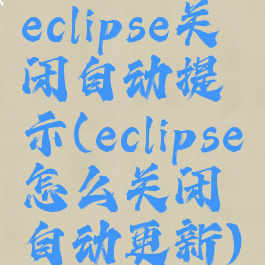 eclipse关
闭自动提
示(eclipse
怎么关闭
自动更新)